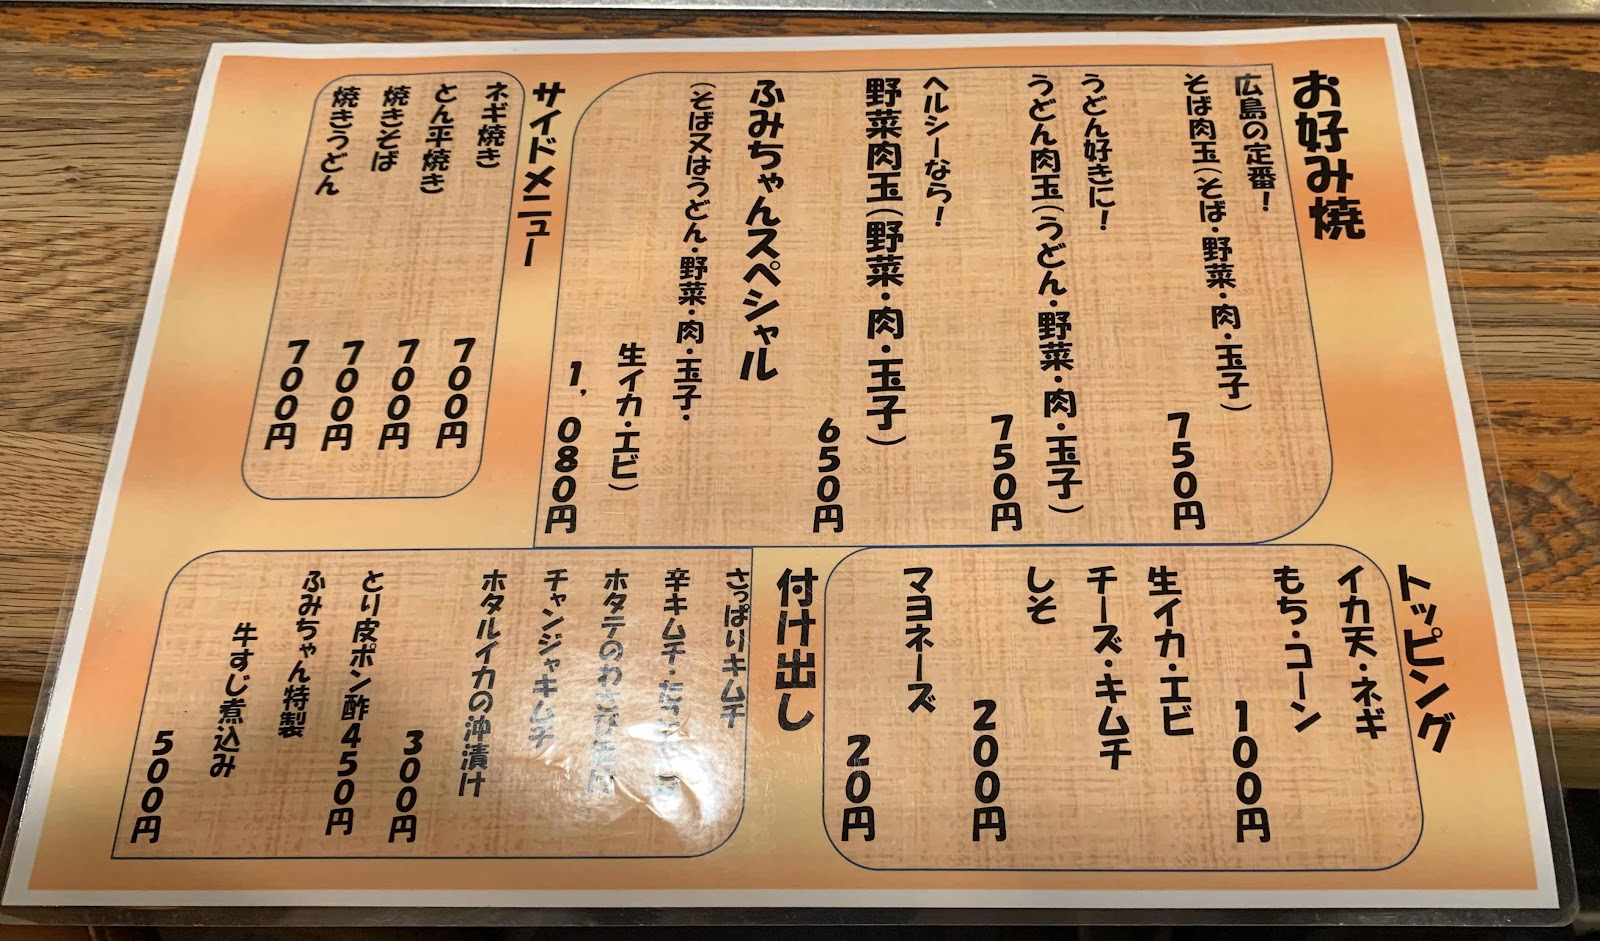 お好み焼
広島の定番！
そば肉玉（そば・野菜・肉・玉子）
750円
うどん好きに！
うどん肉玉（うどん・野菜・肉・玉子）
750円
ヘルシーなら！
野菜肉玉（野菜・肉・玉子）
650円
ふみちゃんスペシャル
（そば又はうどん・野菜・肉・玉子・
生イカ・エビ）
1,080円
サイドメニュー
ネギ焼き
700円
とん平焼き
700円
焼きそば
700円
焼きうどん
700円
トッピング
イカ天・ネギ
もち・コーン
100円
生イカ・エビ
チーズ・キムチ
しそ
200円
マヨネーズ
20円
付け出し
さっぱりキムチ
辛キムチ・
ホタテのわさび
チャンジャキムチ
ホタルイカの沖漬け
300円
とり皮ポン酢450円
ふみちゃん特製
牛すじ煮込み
500円